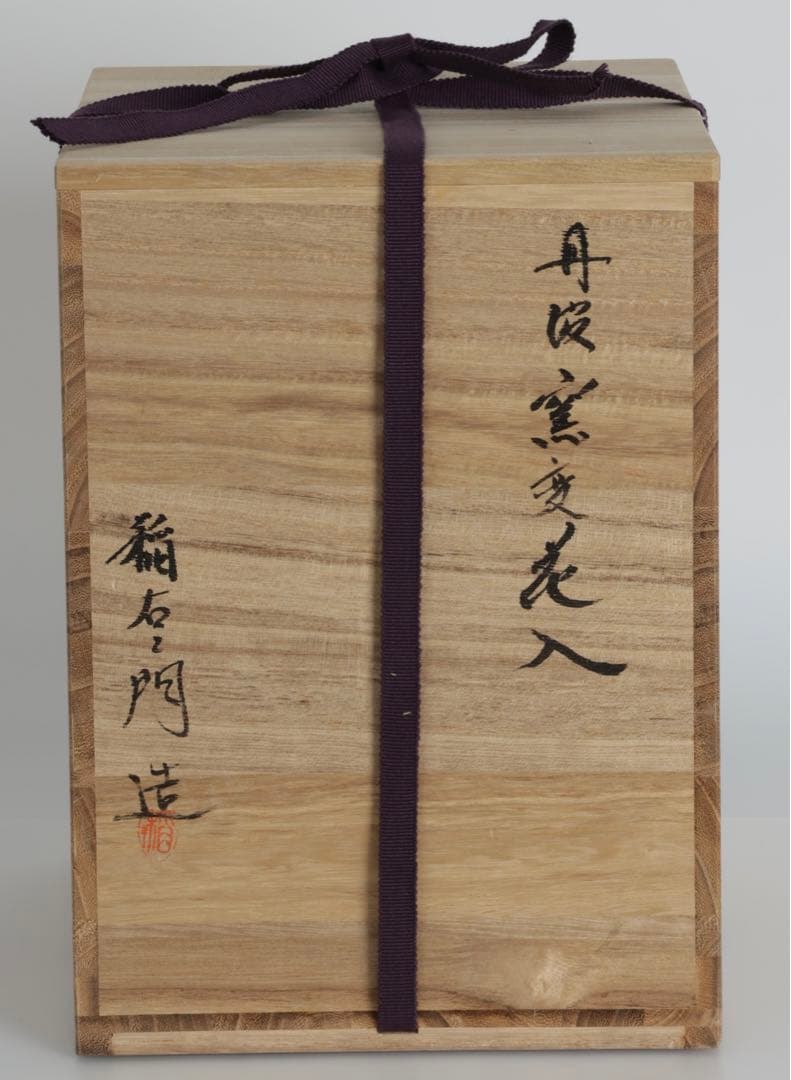 丹波窯変花入
稲右ヱ門造